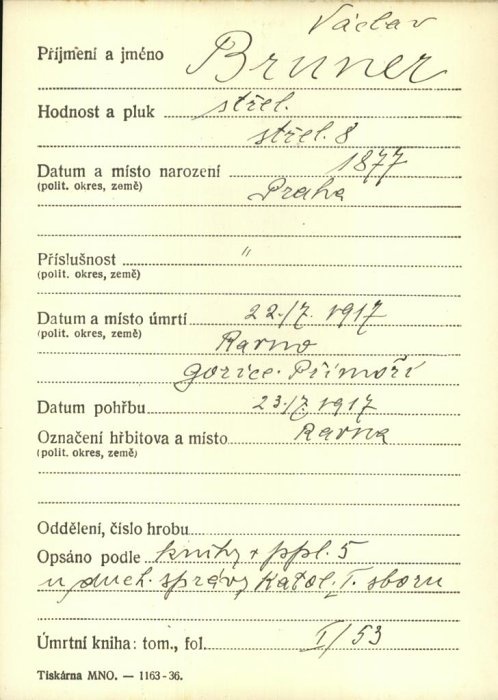 Václav
Příjmení a jméno Bruner
Hodnost a pluk střel.
střel. 8
Datum a místo narození 1877
(polit. okres, země) Praha
Příslušnost "
(polit. okres, země)
Datum a místo úmrtí 22./7. 1917
(polit. okres, země) Ravno
Gorice. Přímoří
Datum pohřbu 23./7. 1917
Označení hřbitova a místo Ravna
(polit. okres, země)
Oddělení, číslo hrobu
Opsáno podle knihy + ppl. 5
u duch. správy katol. I. sboru
Úmrtní kniha: tom., fol. I/53
Tiskárna MNO. — 1163-36.